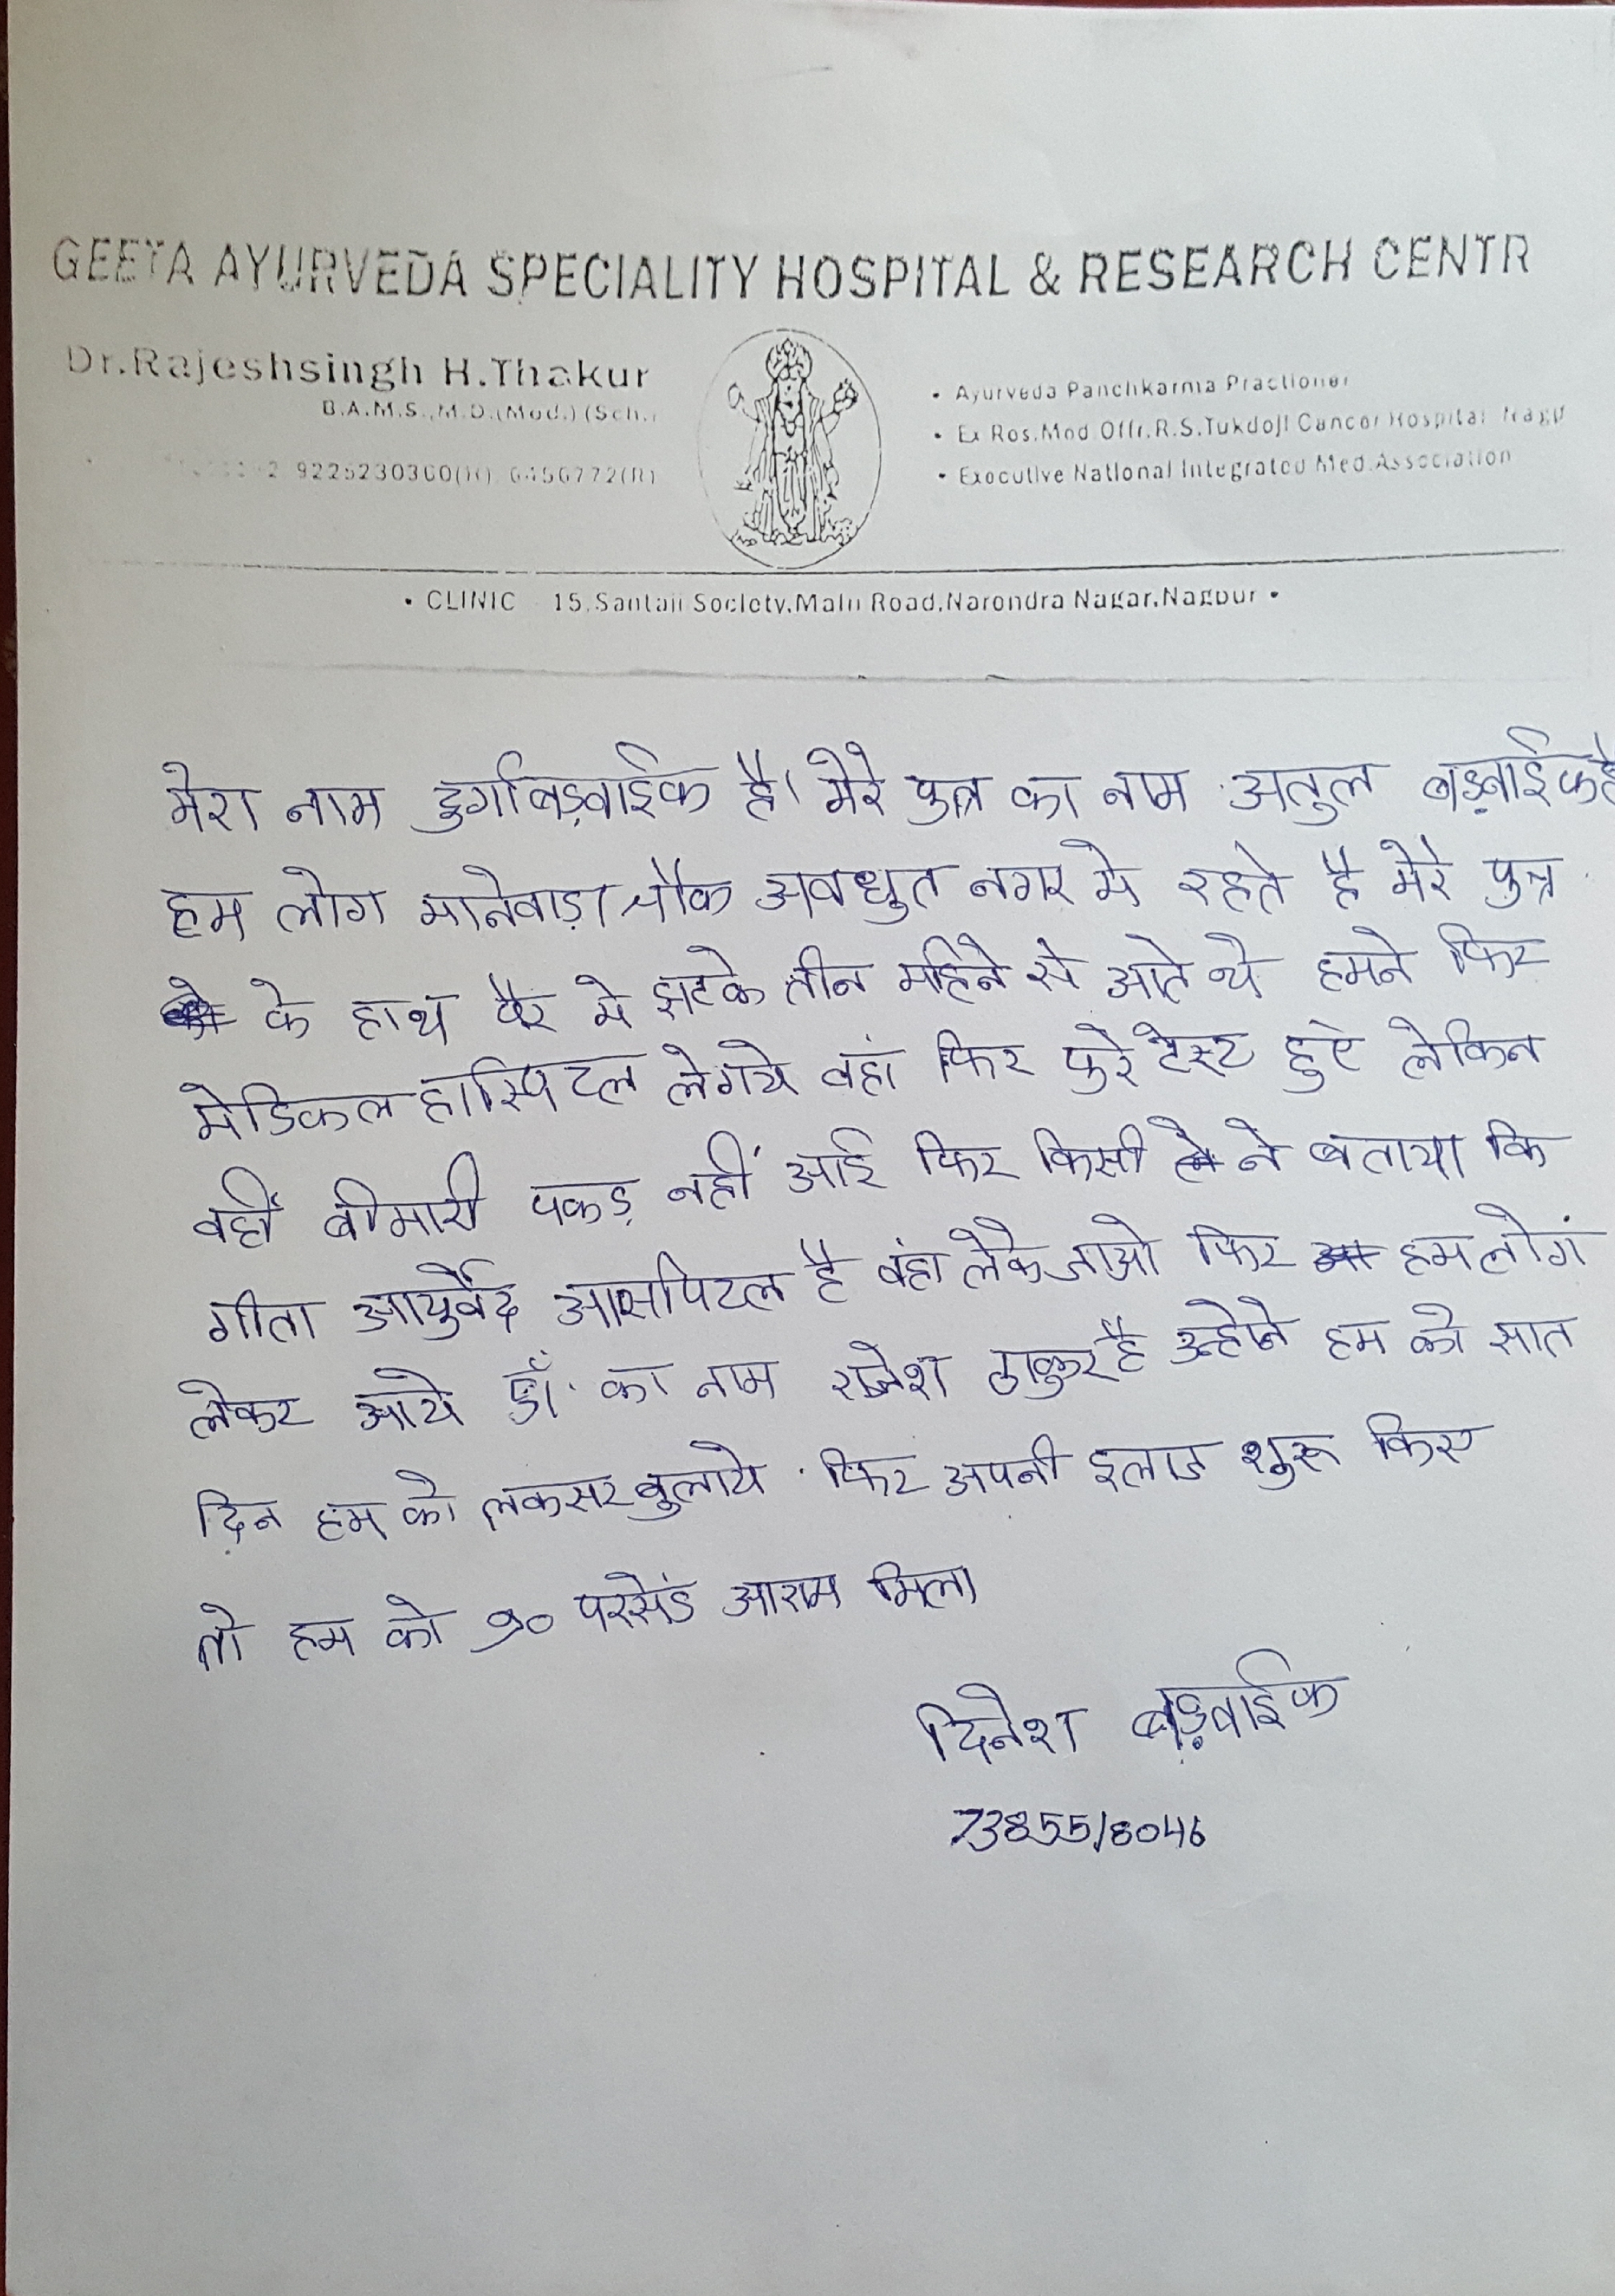 GEETA AYURVEDA SPECIALITY HOSPITAL & RESEARCH CENTR
Dr.Rajeshsingh H.Thakur
B.A.M.S.,M.D.(Med.) (Sch.)
9225230360(H) 6456772(R)
• Ayurveda Panchkarma Practioner
• Ex Res.Med Offr.R.S.Tukdoji Cancer Hospital Nagp
• Executive National Integrated Med.Association
• CLINIC 15,Santaji Society,Main Road,Narendra Nagar,Nagpur •
मेरा नाम दुर्गा बड़वाईक है। मेरे पुत्र का नाम अतुल बड़वाईक है
हम लोग मानेवाड़ा चौक अवधुत नगर मे रहते है मेरे पुत्र
के हाथ पैर मे झटके तीन महिने से आते थे हमने फिर
मेडिकल हास्पिटल लेगये वहां फिर पुरे टेस्ट हुऐ लेकिन
वहीं बीमारी पकड़ नहीं आई फिर किसी ने बताया कि
गीता आयुर्वेद आसपिटल है वंहा लेके जाओ फिर हम लोग
लेकर आये डॉ. का नाम राजेश ठाकुर है उन्होने हम को सात
दिन हम को लकसर बुलाये फिर अपनी इलाज शुरू किए
तो हम को ९० परसेंड आराम मिला
दिनेश बड़वाईक
7385518046